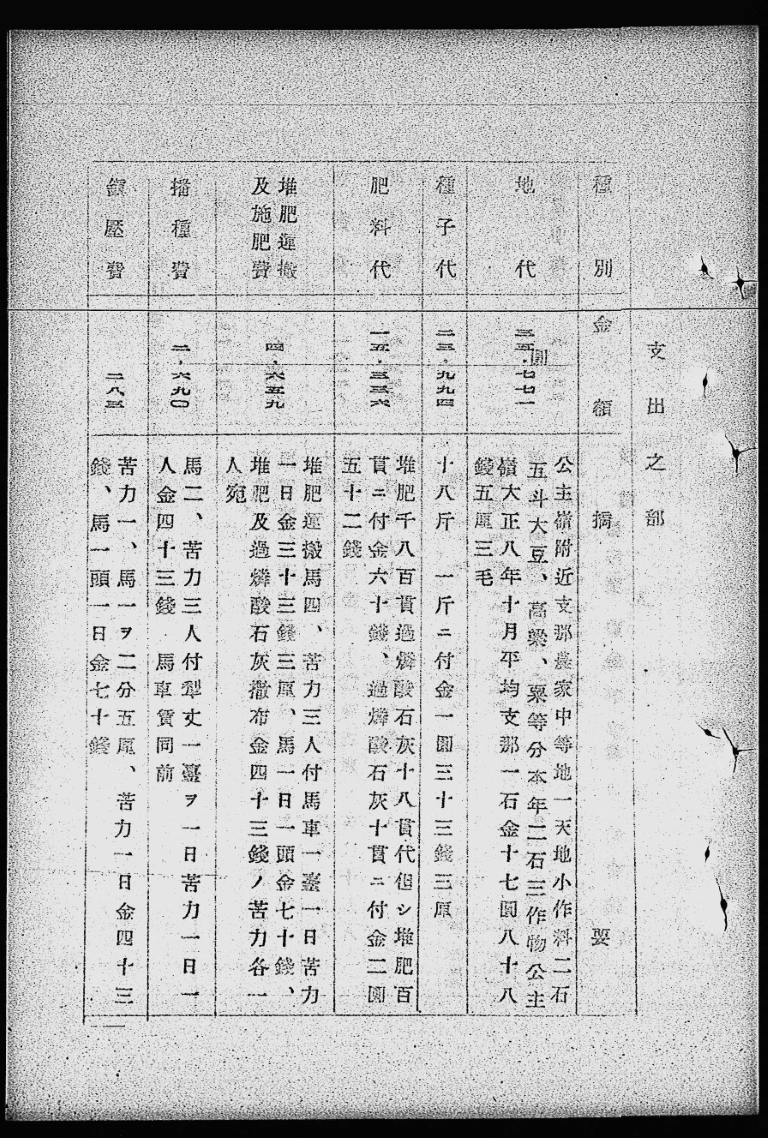 支出之部
種別 金額 摘要
地代
圓
三五・七七一
公主嶺附近支那農家中等地一天地小作料二石
五斗大豆、高粱、粟等分本年二石三作物公主
嶺大正八年十月平均支那一石金十七圓八十八
錢五厘三毛
種子代
二三・九九四
十八斤 一斤ニ付金一圓三十三錢三厘
肥料代
一五・三三六
堆肥千八百貫過燐酸石灰十八貫代但シ堆肥百
貫ニ付金六十錢、過燐酸石灰十貫ニ付金二圓
五十二錢
堆肥運搬
及施肥費
四・六五九
堆肥運搬馬四、苦力三人付馬車一臺一日苦力
一日金三十三錢三厘、馬一日一頭金七十錢、
堆肥及過燐酸石灰撒布金四十三錢ノ苦力各一
人宛
播種費
二・六九〇
馬二、苦力三人付犁丈一臺ヲ一日苦力一日一
人金四十三錢 馬車賃同前
鎭壓費
二八三
苦力一、馬一ヲ二分五厘、苦力一日金四十三
錢、馬一頭一日金七十錢